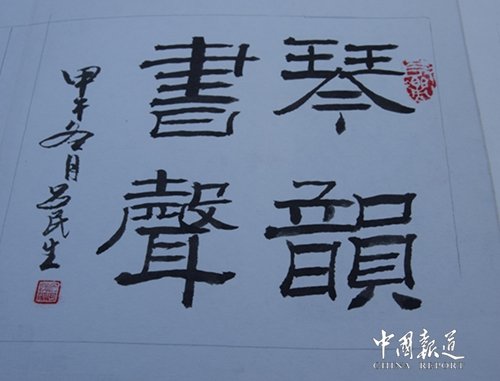 琴韻
書聲
甲午冬月吕民生
中國報道
CHINA REPORT